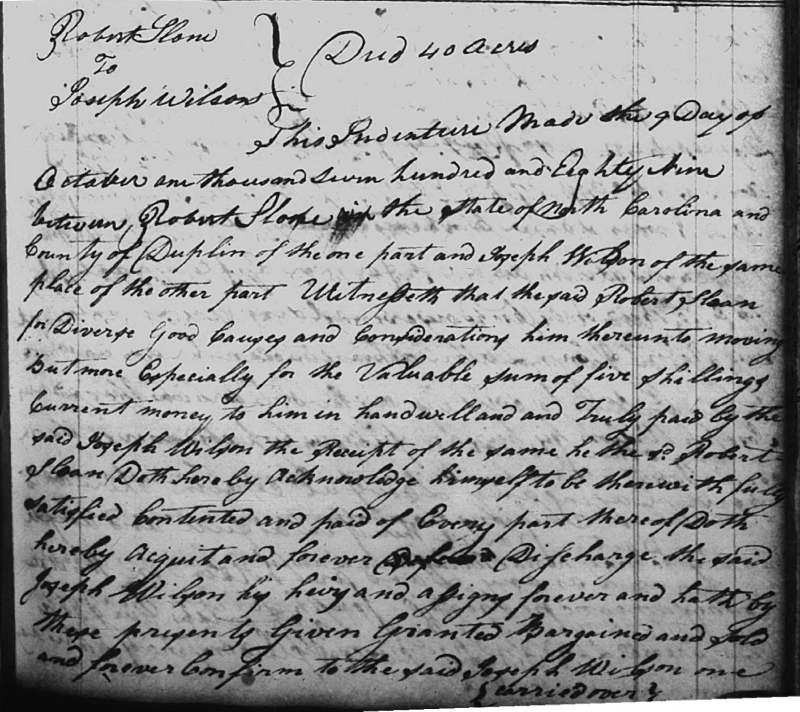 Robert Slone
To
Joseph Wilson
Deed 40 Acres
This Indenture Made the 9 Day of
October one thousand seven hundred and Eighty Nine
between, Robert Slone the State of North Carolina and
County of Duplin of the one part and Joseph Wilson of the same
place of the other part Witnesseth that the said Robert Sloan
for Diverse Good Causes and Considerations him thereunto moving
but more Especially for the Valuable sum of five shillings
Current money to him in hand well and and Truly paid by the
said Joseph Wilson the Receipt of the same he The sd. Robert
Sloan Doth hereby Acknowledge himself to be therewith fully
satisfied Contented and paid of Every part thereof Doth
hereby Acquit and forever Discharge the said
Joseph Wilson his heirs and assigns forever and hath by
these presents Given Granted Bargained and sold
and forever Confirm to the said Joseph Wilson one
carried over